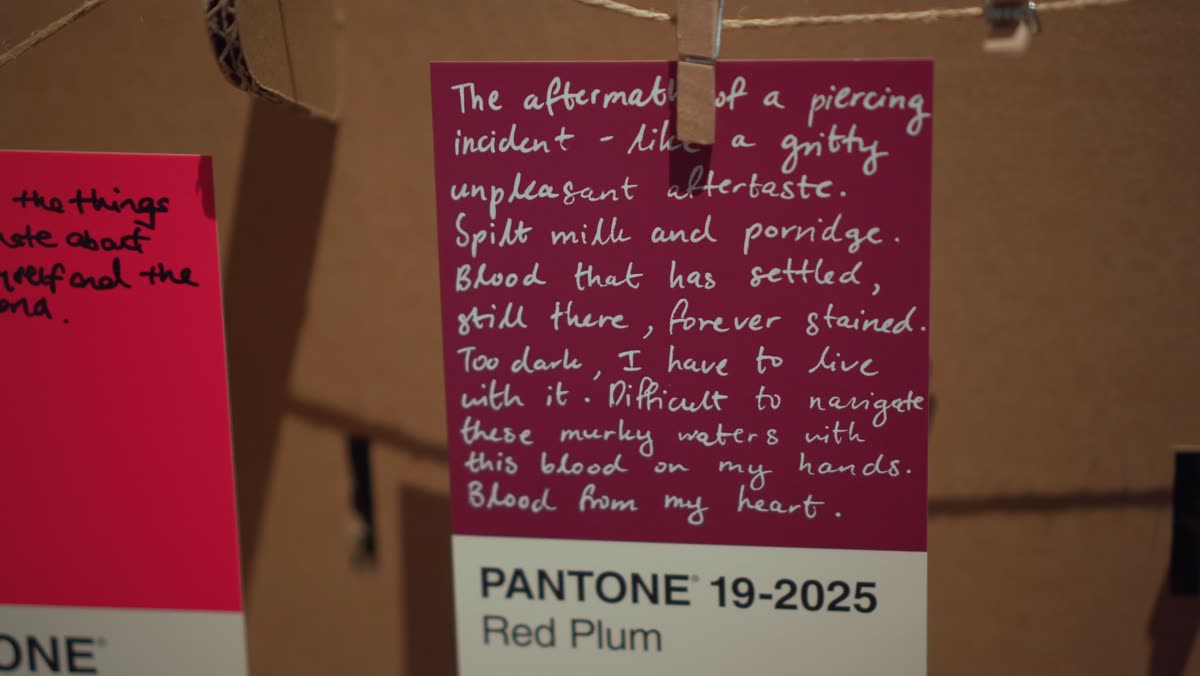 the things
about
and the
.
ONE®
The aftermath of a piercing
incident - like a gritty
unpleasant aftertaste.
Spilt milk and porridge.
Blood that has settled,
still there, forever stained.
Too dark, I have to live
with it. Difficult to navigate
these murky waters with
this blood on my hands.
Blood from my heart.
PANTONE® 19-2025
Red Plum